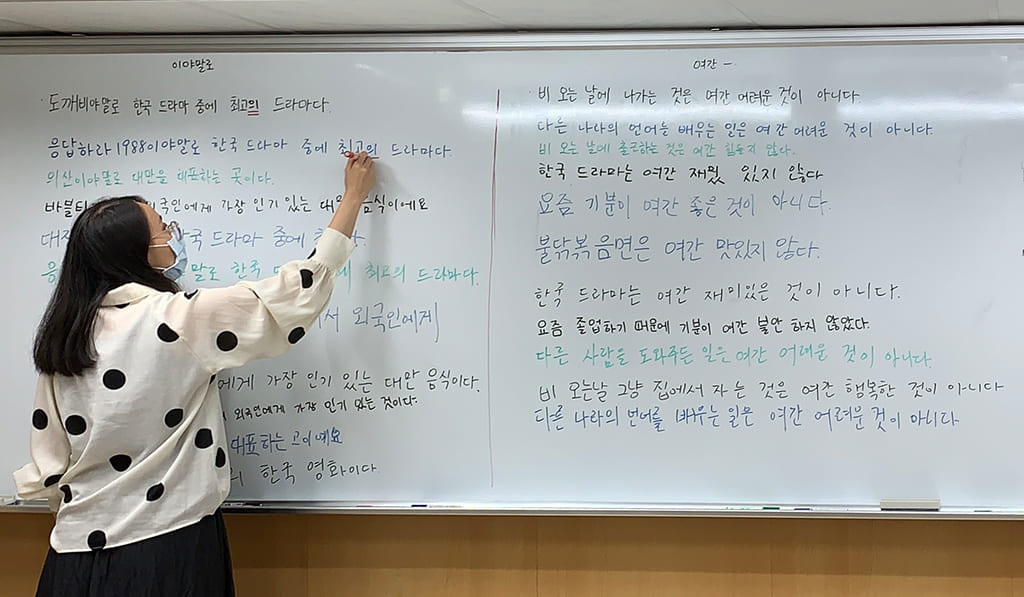 이야말로
도깨비야말로 한국 드라마 중에 최고의 드라마다.
응답하라 1988이야말로 한국 드라아 중에 최고의 드라마다.
의산이야말로 대만을 대표하는 곳이다.
바블티 국인에게 가장 인기 있는 대 음식이에요
대 국 드라마 중에 다.
응 말로 한국 의 최고의 드라마다.
서 외국인에게
에게 가장 인기 있는 대만 음식이다.
외국인에게 가장 인기 있는 것이다.
대표하는 고이예요
한국 영화이다.
여간 —
비 오는 날에 나가는 것은 여간 어려운 것이 아니다.
다른 나라의 언어를 배우는 일은 여간 어려운 것이 아니다.
비 오는 날에 출근하는 것은 여간 힘들지 않다.
한국 드라마는 여간 재밌 있지 않다
요즘 기분이 여간 좋은 것이 아니다.
불닭볶음면은 여간 맛있지 않다.
한국 드라마는 여간 재미있은 것이 아니다.
요즘 졸업하기 때문에 기분이 여간 불안 하지 않았다.
다른 사람을 도와주는 일은 여간 어려운 것이 아니다.
비 오는날 그냥 집에서 자는 것은 여간 행복한 것이 아니다
다른 나라의 언어를 배우는 일은 여간 어려운 것이 아니다.